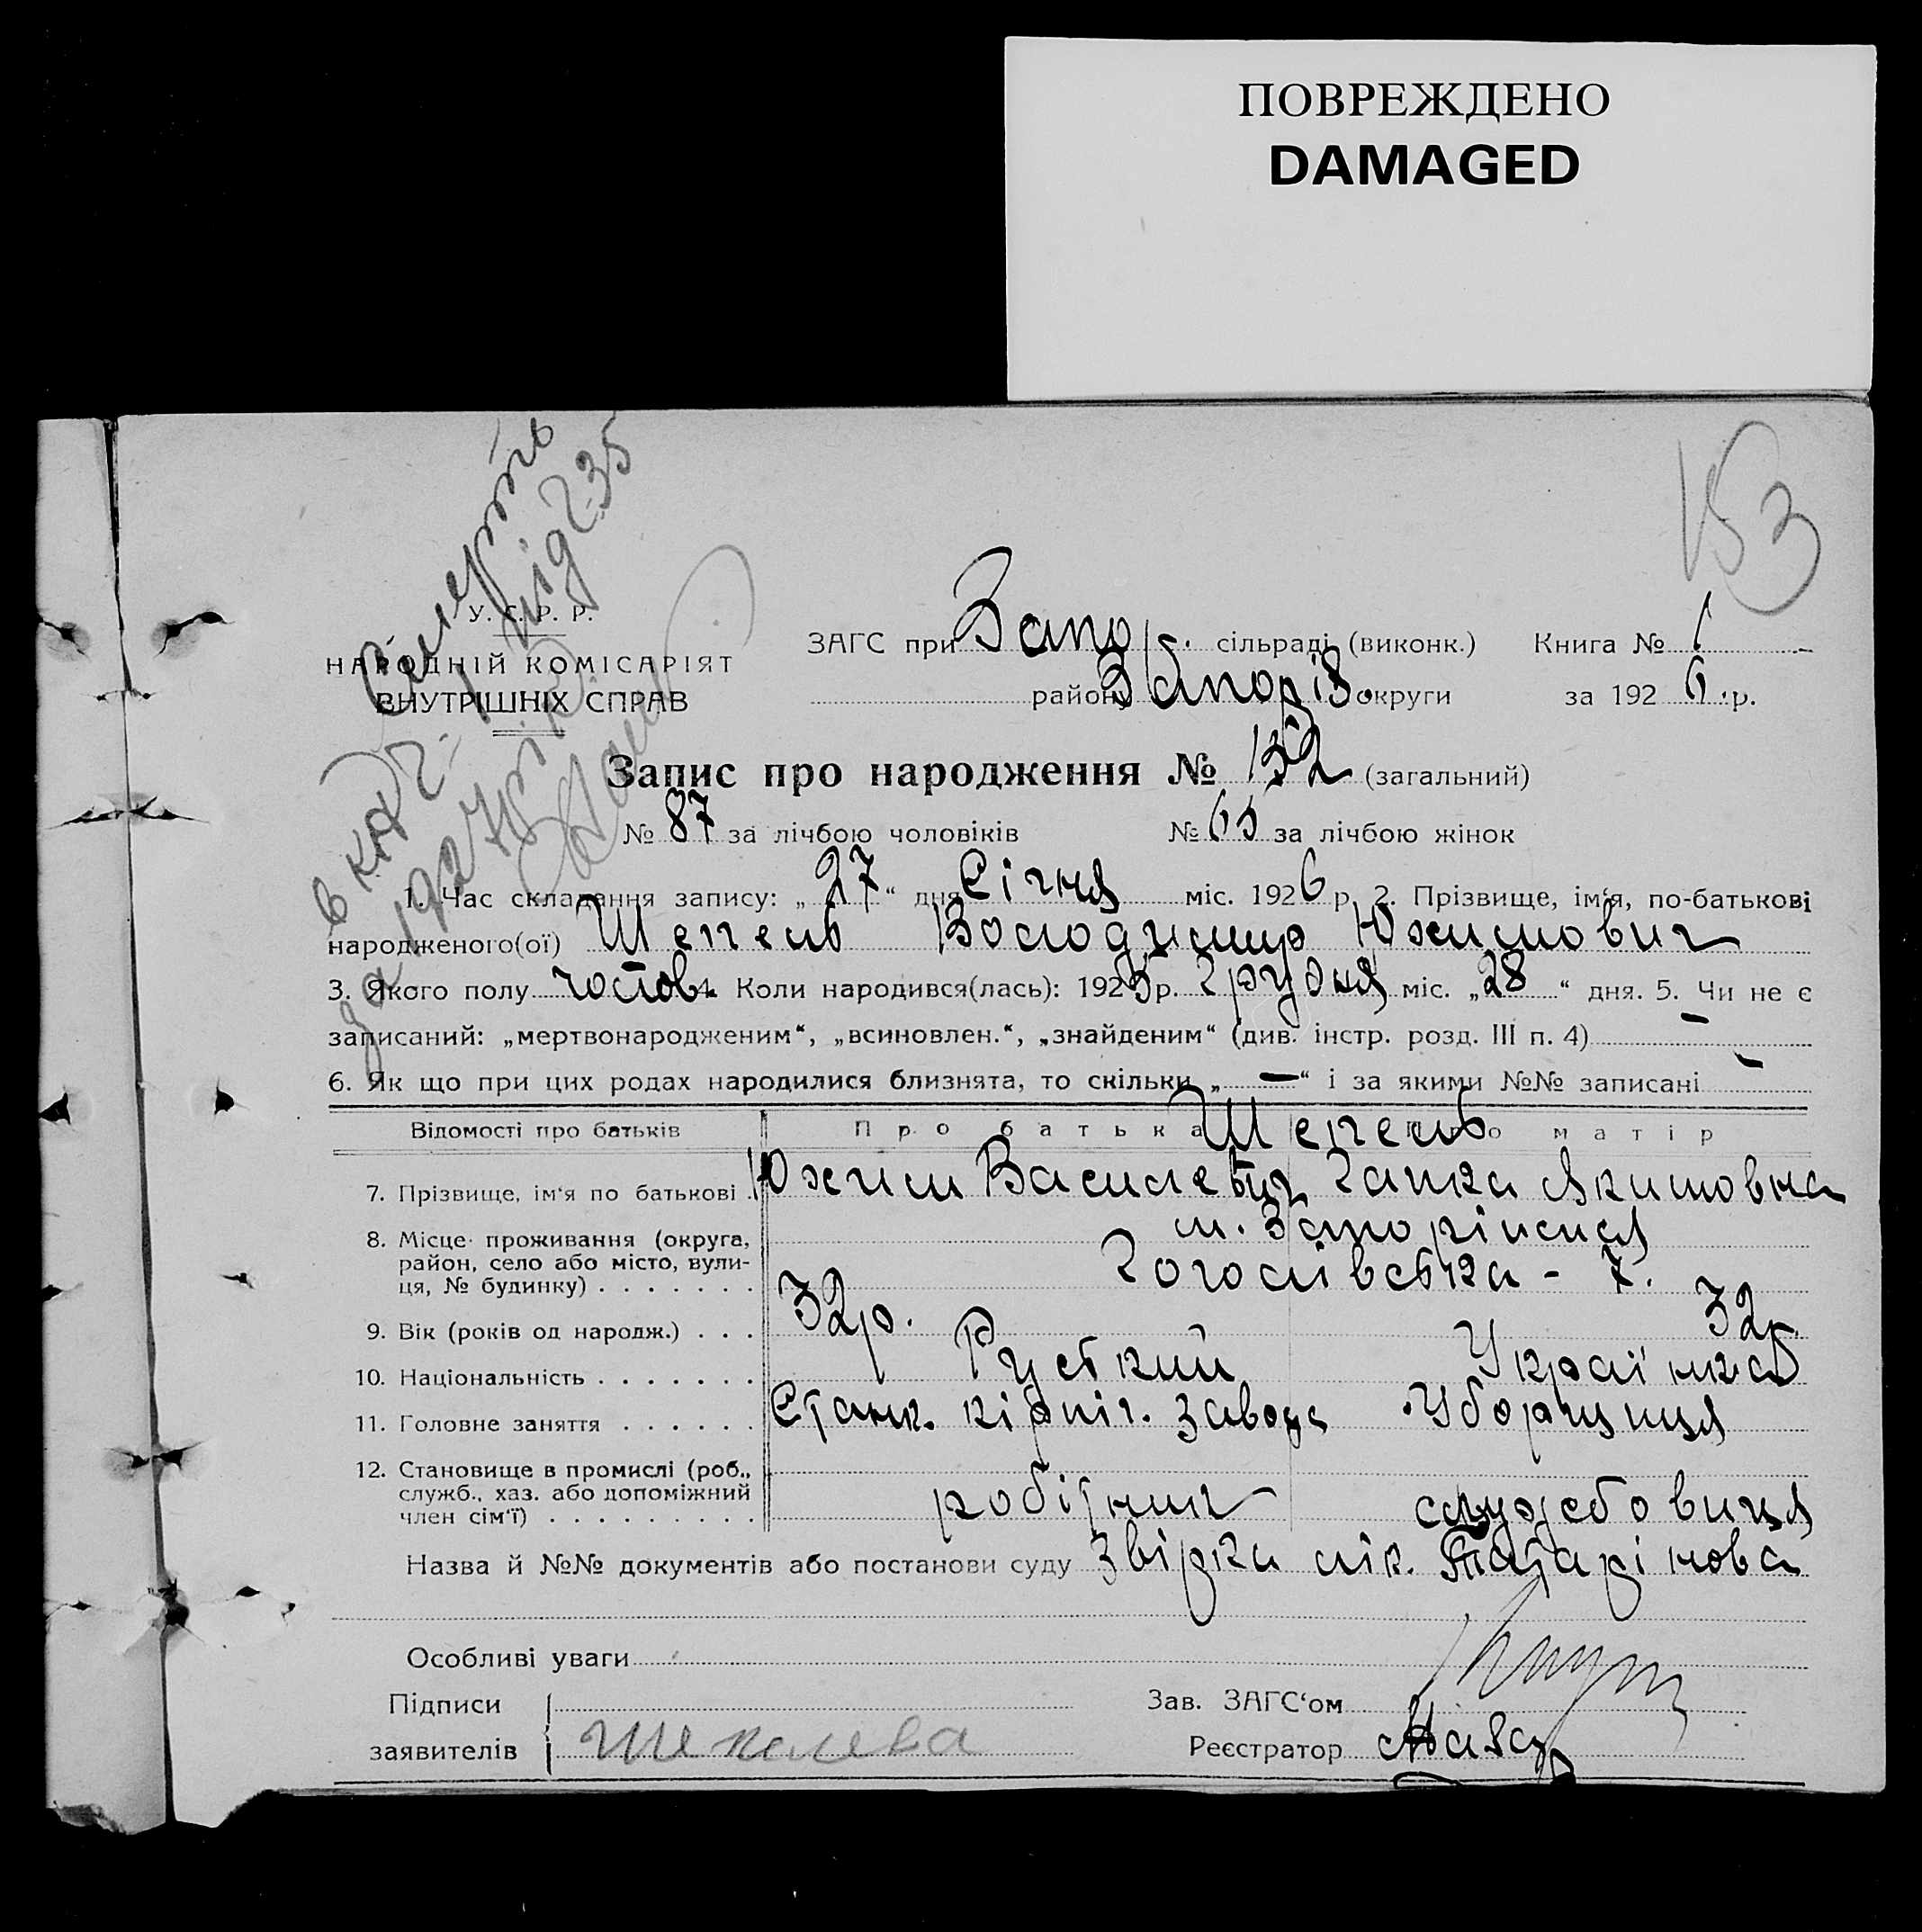 ПОВРЕЖДЕНО
DAMAGED
153
Смерть
під 235
в кн. 2
за 1927 рік
У. С. Р. Р.
НАРОДНІЙ КОМІСАРІЯТ
ВНУТРІШНІХ СПРАВ
ЗАГС при Запор. сільраді (виконк.) Книга № 1
району Запоріз. округи за 1926 р.
Запис про народження № 152 (загальний)
№ 87 за лічбою чоловіків № 65 за лічбою жінок
1. Час складання запису: „27“ дня Січня міс. 1926 р. 2. Прізвище, ім‘я, по-батькові
народженого(ої) Шепель Володимир Юхимович
3. Якого полу чолов. 4. Коли народився(лась): 1925 р. Грудня міс. „28“ дня. 5. Чи не є
записаний: „мертвонародженим“, „всиновлен.“, „знайденим“ (див. інстр. розд. III п. 4) —
6. Як що при цих родах народилися близнята, то скільки „—“ і за якими №№ записані —
Відомості про батьків Про батька Про матір
Шепель
7. Прізвище, ім‘я по батькові Юхим Василевич Ганка Якимовна
8. Місце проживання (округа, район, село або місто, вулиця, № будинку) м. Запоріжжя
Гоголівська - 7.
9. Вік (років од народж.) 32р. 32р.
10. Національність Руський Українка
11. Головне заняття Станк. кірпіч. завода Уборщиця
12. Становище в промислі (роб., служб., хаз. або допоміжний член сім‘ї) робітник службовиця
Назва й №№ документів або постанови суду Звірка лік. Татарінова
Особливі уваги
Підписи
заявителів Шепелева
Зав. ЗАГС‘ом
Реєстратор